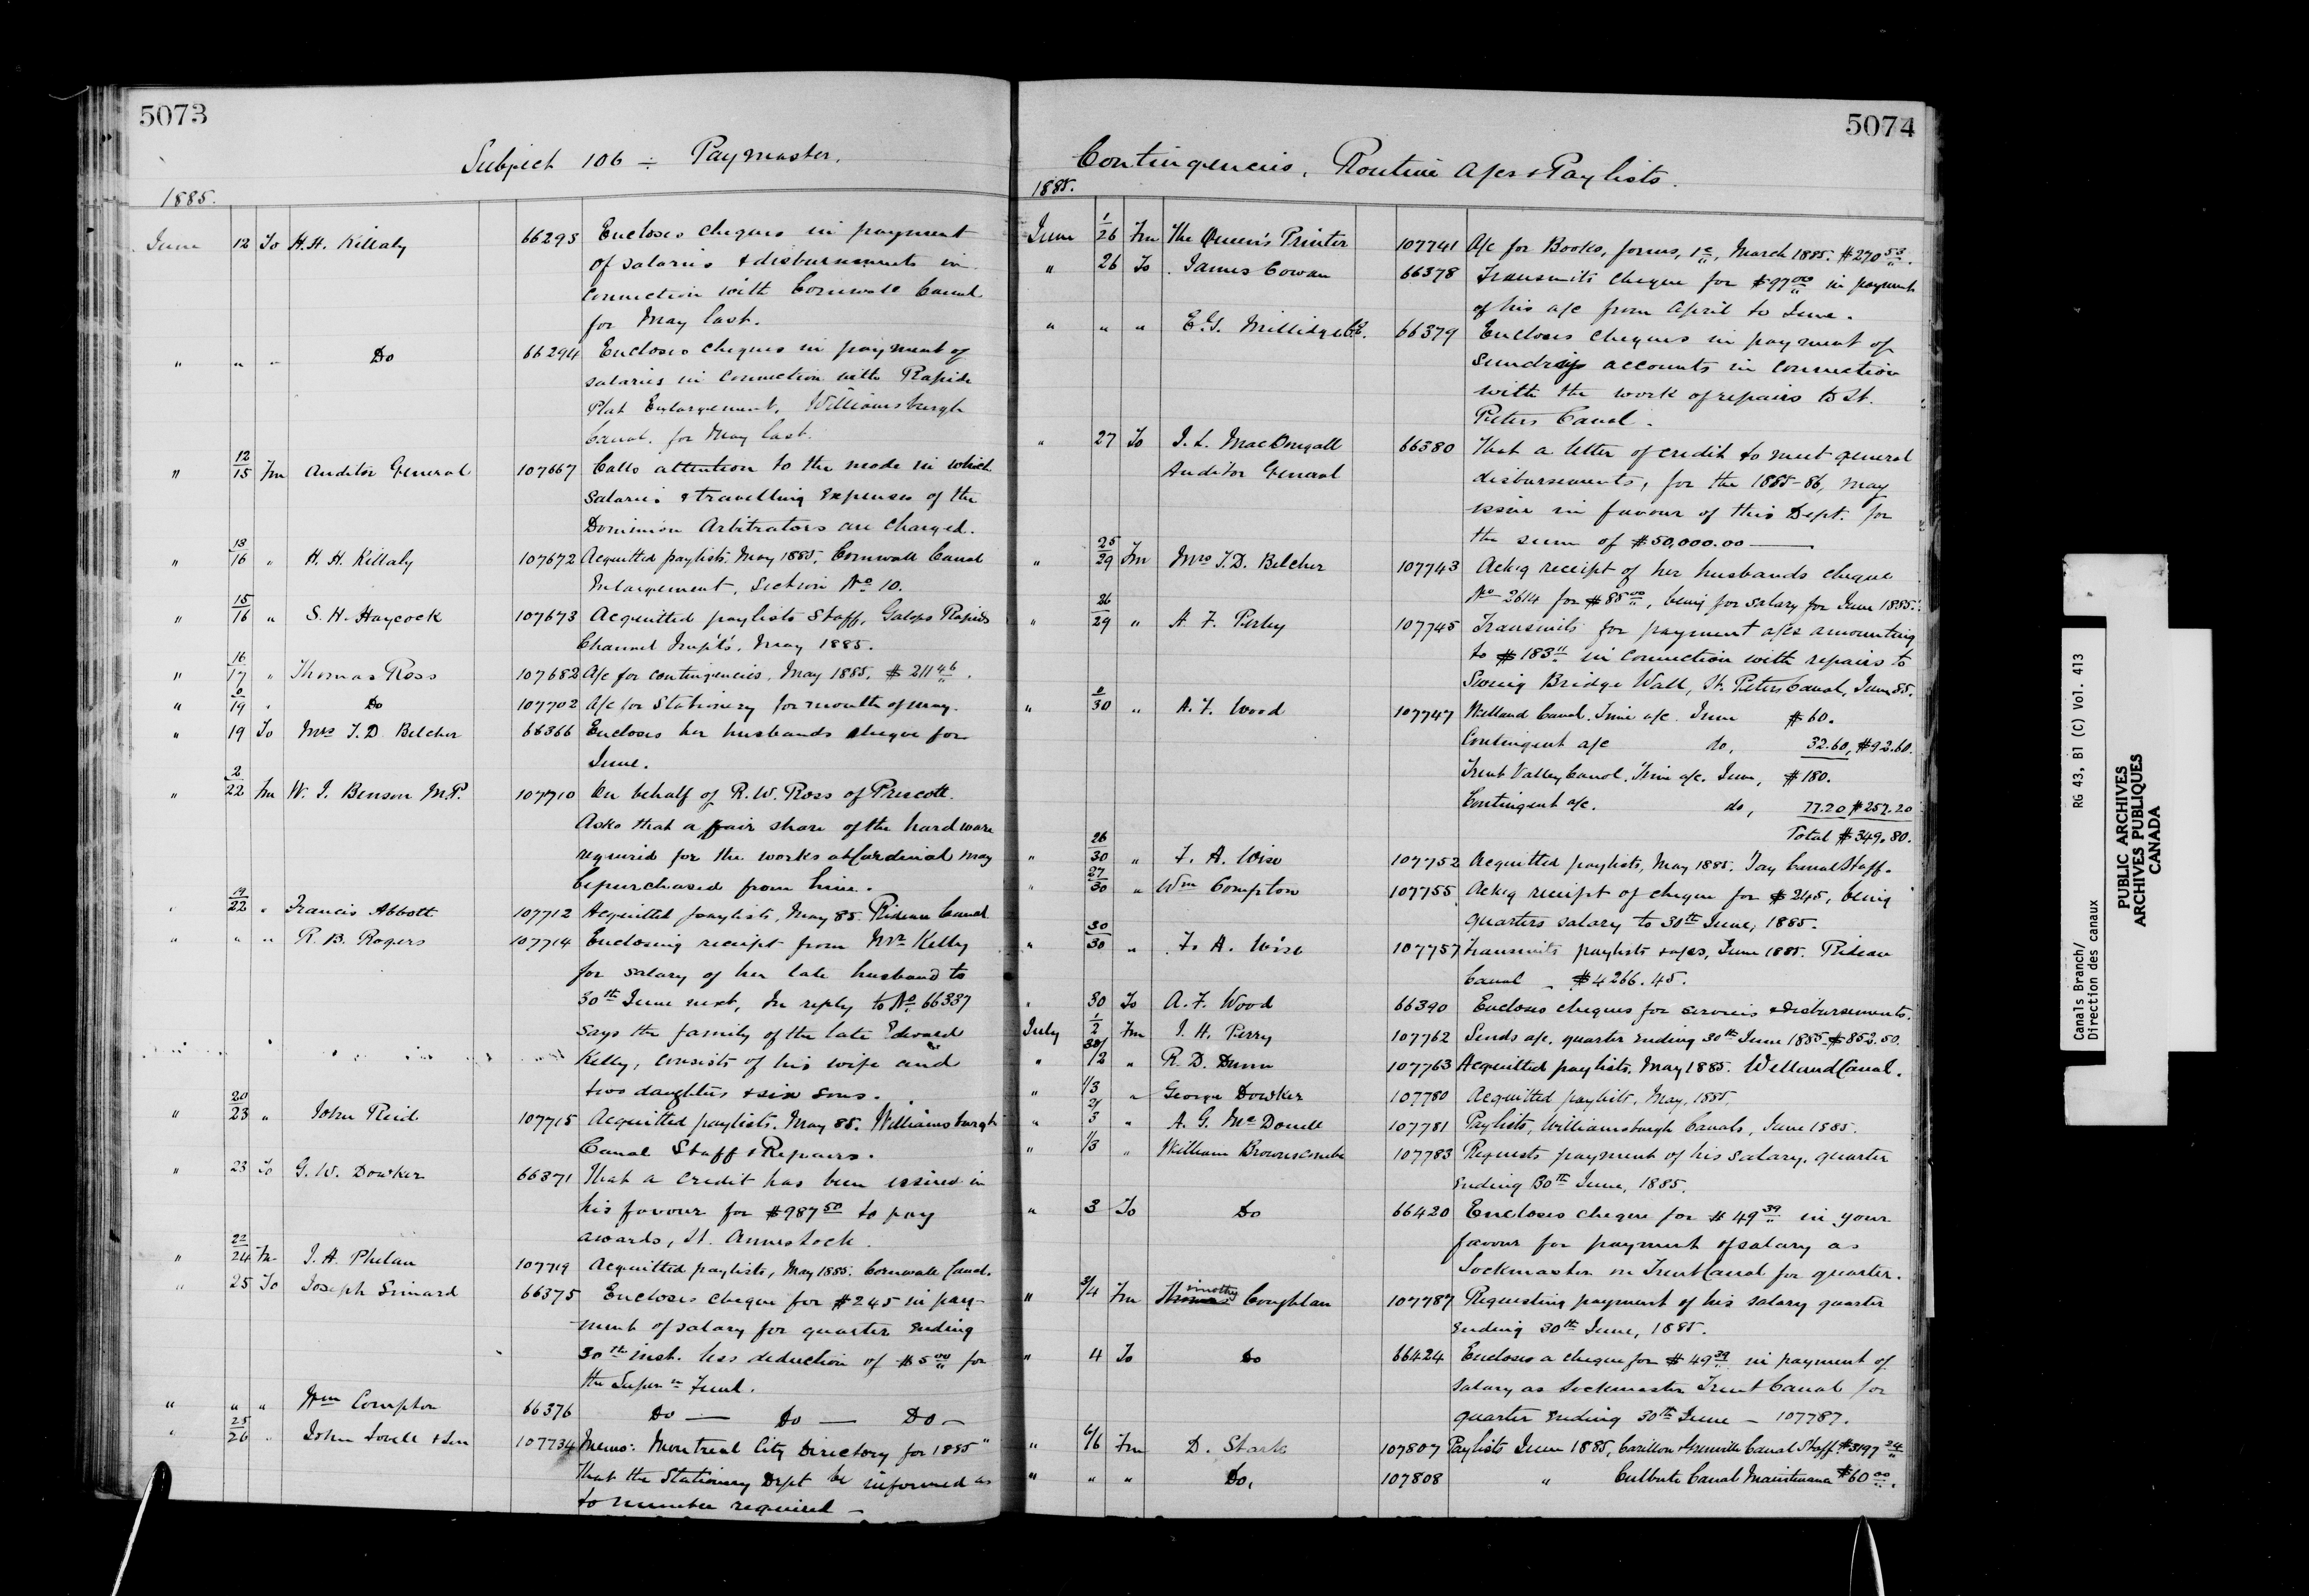 5073
Subject 106 ÷ Paymaster.
1885.
June 12 To H.H. Killaly 66293 Encloses cheques in payment
of salaries & disbursements in
connection with Cornwall Canal
for May last.
" " " Do 66294 Encloses cheques in payment of
salaries in connection with Rapide
Plat Enlargement, Williamsburgh
Canal, for May last.
" 12/15 Fm Auditor General 107667 Calls attention to the mode in which
salaries & travelling expenses of the
Dominion Arbitrators are charged.
" 13/16 " H. H. Killaly 107672 Acquitted paylists, May 1885, Cornwall Canal
Enlargement, Section No 10.
" 15/16 " S. H. Haycock 107673 Acquitted paylists Staff, Galops Rapids
Channel Impts, May 1885.
" 16/17 " Thomas Ross 107682 A/c for contingencies, May 1885, $211 46.
" 0/19 " Do 107702 A/c for Stationery for month of May.
" 19 To Mrs T.D. Belcher 66366 Encloses her husbands cheque for
June.
" 2/22 Fm W. J. Benson M.P. 107710 On behalf of R.W. Ross of Prescott.
Asks that a fair share of the hardware
required for the works at Cardinal may
be purchased from him.
" 19/22 " Francis Abbott 107712 Acquitted paylists, May 85. Rideau Canal
" " " R. B. Rogers 107714 Enclosing receipt from Mrs Kelly
for salary of her late husband to
30th June next, In reply to No 66337
says the family of the late Edward
Kelly, consists of his wife and
two daughters & six sons.
" 20/23 " John Reid 107715 Acquitted paylists. May 85. Williamsburgh
Canal Staff & Repairs.
" 23 To G. W. Dowker 66371 That a credit has been issued in
his favour for $987 50 to pay
awards, St. Annes Lock.
" 22/24 Fm J. A. Phelan 107719 Acquitted paylists, May 1885. Cornwall Canal.
" 25 To Joseph Simard 66375 Encloses cheque for $245 in pay-
ment of salary for quarter ending
30th inst. less deduction of $5 00 for
the Super'n Fund.
" " " Wm Compton 66376 Do — Do — Do —
" 25/26 " John Lovell & Son 107734 Memo: Montreal City Directory for 1885"
That the Stationery Dept be informed as
to number required —
5074
Contingencies, Routine A/cs & Paylists.
1885.
June 1/26 Fm The Queen's Printer 107741 A/c for Books, forms, &c, March 1885. $270 53.
" 26 To James Cowan 66378 Transmits cheque for $97 00 in payment
of his a/c from April to June.
" " " E.G. Millidge C.E. 66379 Encloses cheques in payment of
sundry accounts in connection
with the work of repairs to St.
Peters Canal.
" 27 To J. L. MacDougall 66380 That a letter of credit to meet general
Auditor General disbursements, for the 1885-86, may
issue in favour of this Dept. for
the sum of $50,000.00 —
" 25/29 Fm Mrs T.D. Belcher 107743 Ackg receipt of her husbands cheque
No 2614 for $85 00, being for salary for June 1885.
" 26/29 " A. F. Perley 107745 Transmits for payment a/cs amounting
to $183 11 in connection with repairs to
Swing Bridge Wall, St. Peters Canal, June 85.
" 0/30 " A. F. Wood 107747 Welland Canal. Time a/c. June $60.
Contingent a/c do, 32.60, $92.60.
Trent Valley Canal. Time a/c. June, $180.
Contingent a/c. do, 77.20 $257.20
Total $349.80.
" 26/30 " F. A. Wise 107752 Acquitted paylists, May 1885. Tay Canal Staff.
" 27/30 " Wm Compton 107755 Ackg receipt of cheque for $245, being
quarters salary to 30th June, 1885.
" 30/30 " F. A. Wise 107757 Transmits paylists & a/cs, June 1885. Rideau
Canal - $4266.45.
" 30 To A. F. Wood 66390 Encloses cheques for services & disbursements.
July 1/2 Fm J. H. Perry 107762 Sends a/c. quarter ending 30th June 1885 - $852.50.
" 30/2 " R. D. Dunn 107763 Acquitted paylists, May 1885. Welland Canal.
" 1/3 " George Dowker 107780 Acquitted paylists, May, 1885.
" 2/3 " A. G. McDonell 107781 Paylists, Williamsburgh Canals, June 1885.
" 1/3 " William Brownscombe 107783 Requests payment of his salary, quarter
ending 30th June, 1885.
" 3 To Do 66420 Encloses cheque for $49 39 in your
favour for payment of salary as
Lockmaster on Trent Canal for quarter.
" 3/4 Fm Timothy Coughlan 107787 Requesting payment of his salary quarter
ending 30th June, 1885.
" 4 To Do 66424 Encloses a cheque for $49 39 in payment of
salary as Lockmaster Trent Canal for
quarter ending 30th June — 107787.
" 6/6 Fm D. Stark 107807 Paylists June 1885, Carillon & Grenville Canal Staff. $3197 24
" " " Do, 107808 " Culbute Canal Maintenance $60 00.
Canals Branch/ RG 43, B1 (C) Vol. 413
Direction des canaux
PUBLIC ARCHIVES
ARCHIVES PUBLIQUES
CANADA